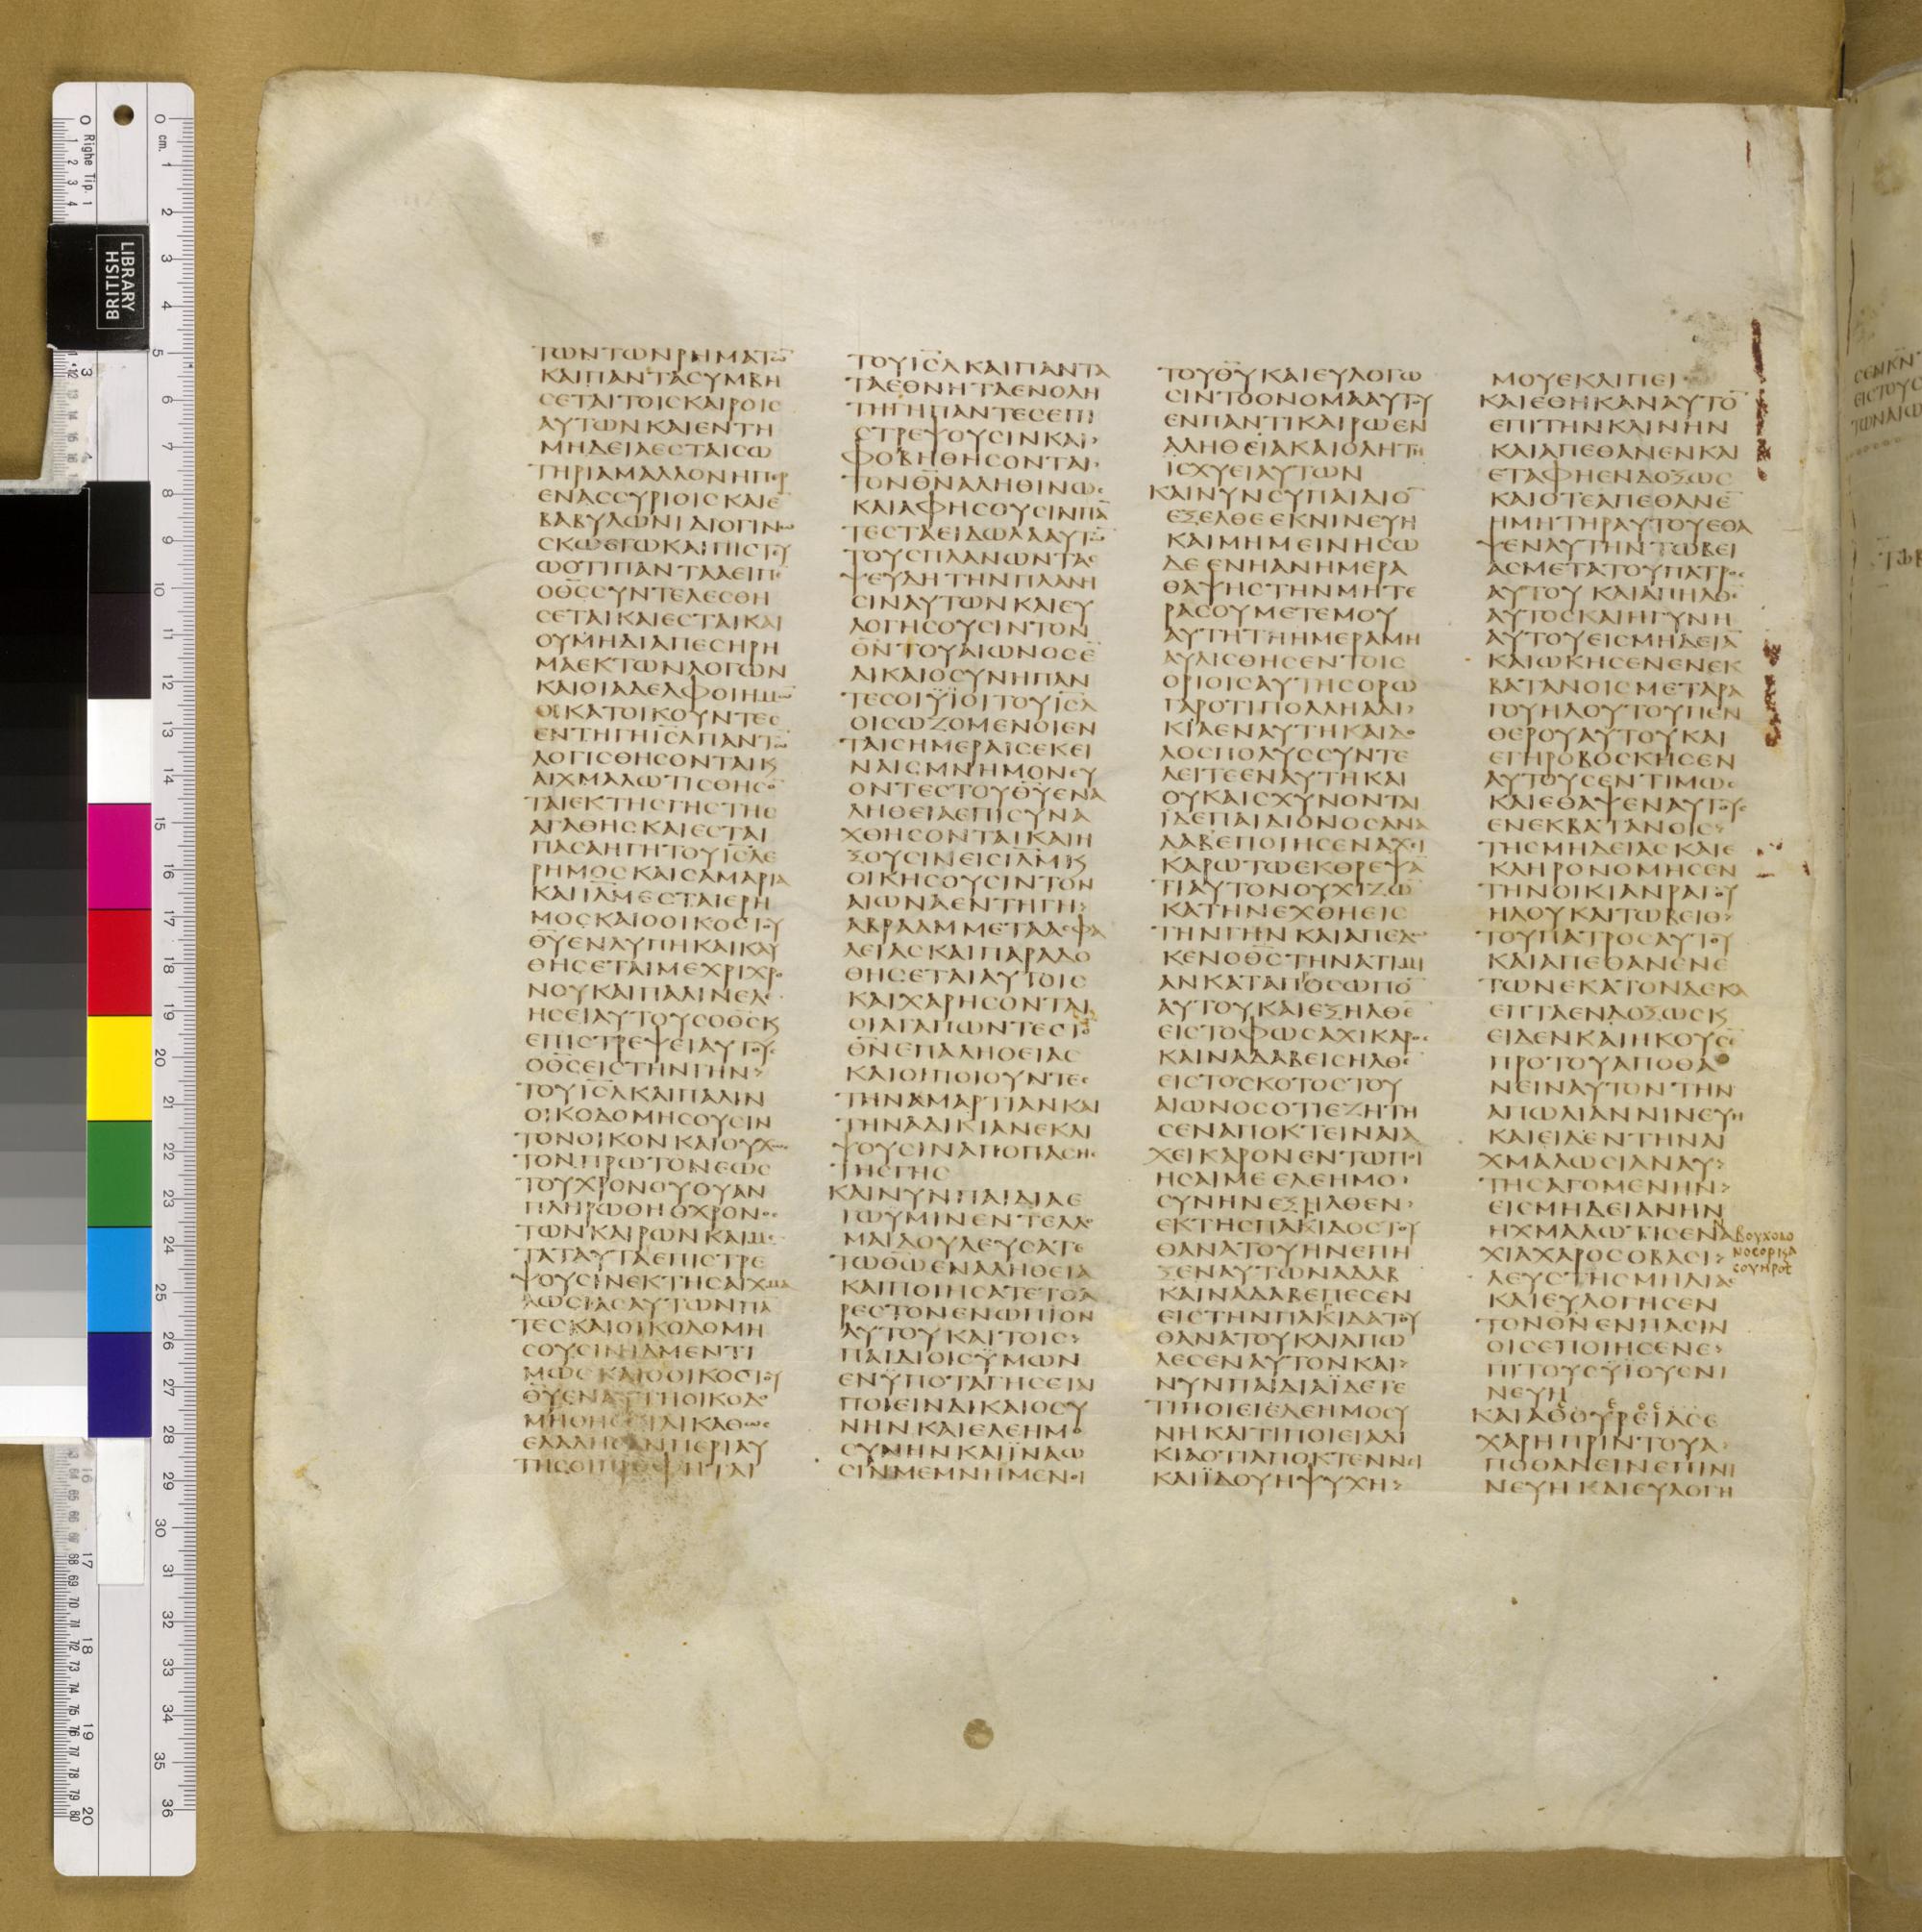 ΤΩΝΤΩΝΡΗΜΑΤΩ̅
ΚΑΙΠΑΝΤΑϹΥΜΒΗ
ϹΕΤΑΙΤΟΙϹΚΑΙΡΟΙϹ
ΑΥΤΩΝΚΑΙΕΝΤΗ
ΜΗΔΕΙΑΕϹΤΑΙϹΩ
ΤΗΡΙΑΜΑΛΛΟΝΗΠΕΡ
ΕΝΑϹϹΥΡΙΟΙϹΚΑΙΕ̅
ΒΑΒΥΛΩΝΙΔΙΟΓΙΝΩ
ϹΚΩΕΓΩΚΑΙΠΙϹΤΕΥ
ΩΟΤΙΠΑΝΤΑΑΕΙΠΕ
ΟΘ̅Ϲ̅ϹΥΝΤΕΛΕϹΘΗ
ϹΕΤΑΙΚΑΙΕϹΤΑΙΚΑΙ
ΟΥΜΗΔΙΑΠΕϹΗΡΗ
ΜΑΕΚΤΩΝΛΟΓΩΝ
ΚΑΙΟΙΑΔΕΛΦΟΙΗΜΩ̅
ΟΙΚΑΤΟΙΚΟΥΝΤΕϹ
ΕΝΤΗΓΗΙ̅Ϲ̅Λ̅ΠΑΝΤΕϹ
ΛΟΓΙϹΘΗϹΟΝΤΑΙΚϗ
ΑΙΧΜΑΛΩΤΙϹΘΗϹΟ̅
ΤΑΙΕΚΤΗϹΓΗϹΤΗϹ
ΑΓΑΘΗϹΚΑΙΕϹΤΑΙ
ΠΑϹΑΗΓΗΤΟΥΙ̅Ϲ̅Λ̅Ε
ΡΗΜΟϹΚΑΙϹΑΜΑΡΙΑ
ΚΑΙΙ̅Λ̅Μ̅ΕϹΤΑΙΕΡΗ
ΜΟϹΚΑΙΟΟΙΚΟϹΤΟΥ
Θ̅Υ̅ΕΝΛΥΠΗΚΑΙΚΑΥ
ΘΗϹΕΤΑΙΜΕΧΡΙΧΡΟ
ΝΟΥΚΑΙΠΑΛΙΝΕΛΕ
ΗϹΕΙΑΥΤΟΥϹΟΘ̅Ϲ̅ϗ
ΕΠΙϹΤΡΕΨΕΙΑΥΤΟΥϹ
ΟΘ̅Ϲ̅ΕΙϹΤΗΝΓΗΝ>
ΤΟΥΙ̅Ϲ̅Λ̅ΚΑΙΠΑΛΙΝ
ΟΙΚΟΔΟΜΗϹΟΥϹΙΝ
ΤΟΝΟΙΚΟΝΚΑΙΟΥΧΩϹ
ΤΟΝΠΡΩΤΟΝΕΩϹ
ΤΟΥΧΡΟΝΟΥΟΥΑΝ
ΠΛΗΡΩΘΗΟΧΡΟΝΟϹ
ΤΩΝΚΑΙΡΩΝΚΑΙΜΕ
ΤΑΤΑΥΤΑΕΠΙϹΤΡΕ
ΨΟΥϹΙΝΕΚΤΗϹΑΙΧΜΑ
ΛΩϹΙΑϹΑΥΤΩΝΠΑ̅
ΤΕϹΚΑΙΟΙΚΟΔΟΜΗ
ϹΟΥϹΙΝΙ̅Λ̅Μ̅ΕΝΤΙ
ΜΩϹΚΑΙΟΟΙΚΟϹΤΟΥ
Θ̅Υ̅ΕΝΑΥΤΗΟΙΚΟΔΟ
ΜΗΘΗϹΕΤΑΙΚΑΘΩϹ
ΕΛΑΛΗϹΑΝΠΕΡΙΑΥ
ΤΗϹΟΙΠΡΟΦΗΤΑΙ
ΤΟΥΙ̅Ϲ̅Λ̅ΚΑΙΠΑΝΤΑ
ΤΑΕΘΝΗΤΑΕΝΟΛΗ
ΤΗΓΗΠΑΝΤΕϹΕΠΙ
ϹΤΡΕΨΟΥϹΙΝΚΑΙ>
ΦΟΒΗΘΗϹΟΝΤΑΙ>
ΤΟΝΘ̅Ν̅ΑΛΗΘΙΝΩϹ
ΚΑΙΑΦΗϹΟΥϹΙΝΠΑ̅
ΤΕϹΤΑΕΙΔΩΛΑΑΥΤΩ̅
ΤΟΥϹΠΛΑΝΩΝΤΑϹ
ΨΕΥΔΗΤΗΝΠΛΑΝΗ
ϹΙΝΑΥΤΩΝΚΑΙΕΥ
ΛΟΓΗϹΟΥϹΙΝΤΟΝ
Θ̅Ν̅ΤΟΥΑΙΩΝΟϹΕ̅
ΔΙΚΑΙΟϹΥΝΗΠΑΝ
ΤΕϹΟΙΫΪΟΙΤΟΥΙ̅Ϲ̅Λ̅
ΟΙϹΩΖΟΜΕΝΟΙΕΝ
ΤΑΙϹΗΜΕΡΑΙϹΕΚΕΙ
ΝΑΙϹΜΝΗΜΟΝΕΥ
ΟΝΤΕϹΤΟΥΘ̅Υ̅ΕΝΑ
ΛΗΘΕΙΑΕΠΙϹΥΝΑ
ΧΘΗϹΟΝΤΑΙΚΑΙΗ
ΞΟΥϹΙΝΕΙϹΙ̅Λ̅Μ̅ϗ
ΟΙΚΗϹΟΥϹΙΝΤΟΝ
ΑΙΩΝΑΕΝΤΗΓΗ>
ΑΒΡΑΑΜΜΕΤΑΑϹΦΑ
ΛΕΙΑϹΚΑΙΠΑΡΑΔΟ
ΘΗϹΕΤΑΙΑΥΤΟΙϹ
ΚΑΙΧΑΡΗϹΟΝΤΑΙ
ΟΙΑΓΑΠΩΝΤΕϹΤΟ̅
Θ̅Ν̅ΕΠΑΛΗΘΕΙΑϹ
ΚΑΙΟΙΠΟΙΟΥΝΤΕϹ
ΤΗΝΑΜΑΡΤΙΑΝΚΑΙ
ΤΗΝΑΔΙΚΙΑΝΕΚΛΙ
ΨΟΥϹΙΝΑΠΟΠΑϹΗϹ
ΤΗϹΓΗϹ
ΚΑΙΝΥΝΠΑΙΔΙΑΕ
ΓΩΥΜΙΝΕΝΤΕΛΛΟ
ΜΑΙΔΟΥΛΕΥϹΑΤΕ
ΤΩΘ̅Ω̅ΕΝΑΛΗΘΕΙΑ
ΚΑΙΠΟΙΗϹΑΤΕΤΟΑ
ΡΕϹΤΟΝΕΝΩΠΙΟΝ
ΑΥΤΟΥΚΑΙΤΟΙϹ>
ΠΑΙΔΙΟΙϹΫΜΩΝ
ΕΝΫΠΟΤΑΓΗϹΕΤΑΙ
ΠΟΙΕΙΝΔΙΚΑΙΟϹΥ
ΝΗΝΚΑΙΕΛΕΗΜΟ
ϹΥΝΗΝΚΑΙΪΝΑΩ
ϹΙΝΜΕΜΝΗΜΕΝΟΙ
ΤΟΥΘ̅Υ̅ΚΑΙΕΥΛΟΓΩ
ϹΙΝΤΟΟΝΟΜΑΑΥΤΟΥ
ΕΝΠΑΝΤΙΚΑΙΡΩΕΝ
ΑΛΗΘΕΙΑΚΑΙΟΛΗΤΗ
ΙϹΧΥΕΙΑΥΤΩΝ
ΚΑΙΝΥΝϹΥΠΑΙΔΙΟ̅
ΕΞΕΛΘΕΕΚΝΙΝΕΥΗ
ΚΑΙΜΗΜΕΙΝΗϹΩ
ΔΕΕΝΗΑΝΗΜΕΡΑ
ΘΑΨΗϹΤΗΝΜΗΤΕ
ΡΑϹΟΥΜΕΤΕΜΟΥ
ΑΥΤΗΤΗΗΜΕΡΑΜΗ
ΑΥΛΙϹΘΗϹΕΝΤΟΙϹ
ΟΡΙΟΙϹΑΥΤΗϹΟΡΩ
ΓΑΡΟΤΙΠΟΛΛΗΑΔΙ>
ΚΙΑΕΝΑΥΤΗΚΑΙΔΟ
ΛΟϹΠΟΛΥϹϹΥΝΤΕ
ΛΕΙΤΕΕΝΑΥΤΗΚΑΙ
ΟΥΚΑΙϹΧΥΝΟΝΤΑΙ
ΙΔΕΠΑΙΔΙΟΝΟϹΑΝΑ
ΔΑΒΕΠΟΙΗϹΕΝΑΧΕΙ
ΚΑΡΩΤΩΕΚΘΡΕΨΑ̅
ΤΙΑΥΤΟΝΟΥΧΙΖΩ̅
ΚΑΤΗΝΕΧΘΗΕΙϹ
ΤΗΝΓΗΝΚΑΙΑΠΕΔΩ
ΚΕΝΟΘ̅Ϲ̅ΤΗΝΑΤΙΜΙ
ΑΝΚΑΤΑΠΡΟϹΩΠΟ̅
ΑΥΤΟΥΚΑΙΕΞΗΛΘΕ̅
ΕΙϹΤΟΦΩϹΑΧΙΚΑΡΟϹ
ΚΑΙΝΑΔΑΒΕΙϹΗΛΘΕ̅
ΕΙϹΤΟϹΚΟΤΟϹΤΟΥ
ΑΙΩΝΟϹΟΤΙΕΖΗΤΗ
ϹΕΝΑΠΟΚΤΕΙΝΑΙΑ
ΧΕΙΚΑΡΟΝΕΝΤΩΠΟΙ
ΗϹΑΙΜΕΕΛΕΗΜΟ>
ϹΥΝΗΝΕΞΗΛΘΕΝ>
ΕΚΤΗϹΠΑΚΙΔΟϹΤΟΥ
ΘΑΝΑΤΟΥΗΝΕΠΗ
ΞΕΝΑΥΤΩΝΑΔΑΒ
ΚΑΙΝΑΔΑΒΕΠΕϹΕΝ
ΕΙϹΤΗΝΠΑΚΙΔΑΤΟΥ
ΘΑΝΑΤΟΥΚΑΙΑΠΩ
ΛΕϹΕΝΑΥΤΟΝΚΑΙ>
ΝΥΝΠΑΙΔΙΑΪΔΕΤΕ
ΤΙΠΟΙΕΙΕΛΕΗΜΟϹΥ
ΝΗΚΑΙΤΙΠΟΙΕΙΑΔΙ
ΚΙΑΟΤΙΑΠΟΚΤΕΝΝΕΙ
ΚΑΙΪΔΟΥΗΨΥΧΗ>
ΜΟΥΕΚΛΙΠΕΙ
ΚΑΙΕΘΗΚΑΝΑΥΤΟ̅
ΕΠΙΤΗΝΚΛΙΝΗΝ
ΚΑΙΑΠΕΘΑΝΕΝΚΑΙ
ΕΤΑΦΗΕΝΔΟΞΩϹ
ΚΑΙΟΤΕΑΠΕΘΑΝΕ̅
ΗΜΗΤΗΡΑΥΤΟΥΕΘΑ
ΨΕΝΑΥΤΗΝΤΩΒΕΙ
ΑϹΜΕΤΑΤΟΥΠΑΤΡΟϹ
ΑΥΤΟΥΚΑΙΑΠΗΛΘΕ̅
ΑΥΤΟϹΚΑΙΗΓΥΝΗ
ΑΥΤΟΥΕΙϹΜΗΔΕΙΑ̅
ΚΑΙΩΚΗϹΕΝΕΝΕΚ
ΒΑΤΑΝΟΙϹΜΕΤΑΡΑ
ΓΟΥΗΛΟΥΤΟΥΠΕΝ
ΘΕΡΟΥΑΥΤΟΥΚΑΙ
ΕΓΗΡΟΒΟϹΚΗϹΕΝ
ΑΥΤΟΥϹΕΝΤΙΜΩϹ
ΚΑΙΕΘΑΨΕΝΑΥΤΟΥϹ
ΕΝΕΚΒΑΤΑΝΟΙϹ>
ΤΗϹΜΗΔΕΙΑϹΚΑΙΕ
ΚΛΗΡΟΝΟΜΗϹΕΝ
ΤΗΝΟΙΚΙΑΝΡΑΓΟΥ
ΗΛΟΥΚΑΙΤΩΒΕΙΘ>
ΤΟΥΠΑΤΡΟϹΑΥΤΟΥ
ΚΑΙΑΠΕΘΑΝΕΝΕ
ΤΩΝΕΚΑΤΟΝΔΕΚΑ
ΕΠΤΑΕΝΔΟΞΩϹϗ
ΕΙΔΕΝΚΑΙΗΚΟΥϹΕ̅
ΠΡΟΤΟΥΑΠΟΘΑ
ΝΕΙΝΑΥΤΟΝΤΗΝ
ΑΠΩΛΙΑΝΝΙΝΕΥΗ
ΚΑΙΕΙΔΕΝΤΗΝΑΙ
ΧΜΑΛΩϹΙΑΝΑΥ>
ΤΗϹΑΓΟΜΕΝΗΝ>
ΕΙϹΜΗΔΕΙΑΝΗΝ
ΗΧΜΑΛΩΤΙϹΕΝ
ΧΙΑΧΑΡΟϹΟΒΑϹΙ>
ΛΕΥϹΤΗϹΜΗΔΙΑϹ
ΚΑΙΕΥΛΟΓΗϹΕΝ
ΤΟΝΘ̅Ν̅ΕΝΠΑϹΙΝ
ΟΙϹΕΠΟΙΗϹΕΝΕ>
ΠΙΤΟΥϹΫΪΟΥϹΝΙ
ΝΕΥΗ
ΚΑΙΑΘΟΥΡΕΙΑϹΕ
ΧΑΡΗΠΡΙΝΤΟΥΑ>
ΠΟΘΑΝΕΙΝΕΠΙΝΙ
ΝΕΥΗΚΑΙΕΥΛΟΓΗ